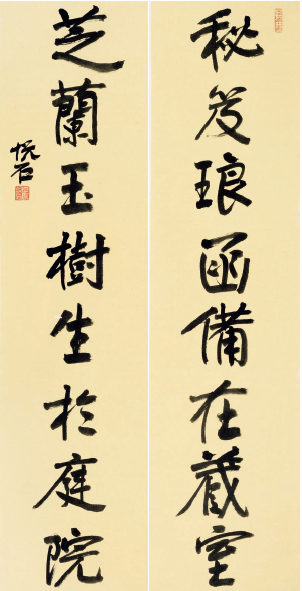 秘笈琅函備在藏室
芝蘭玉樹生於庭院
悦石